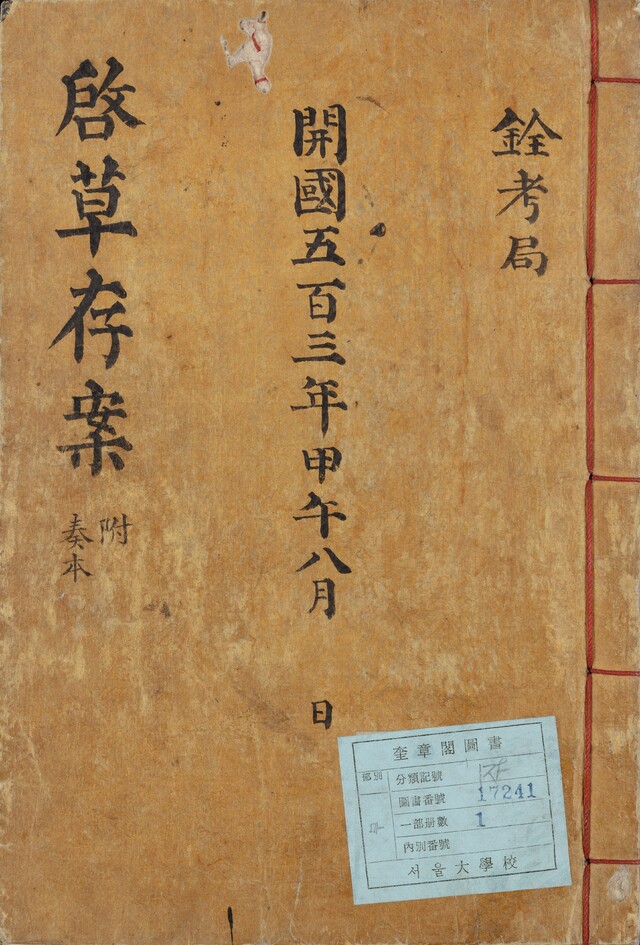 銓考局
開國五百三年甲午八月 日
啓草存案
附
奏本
奎章閣圖書
部別
分類記號
圖書番號 17241
一部册數 1
內別番號
서울大學校